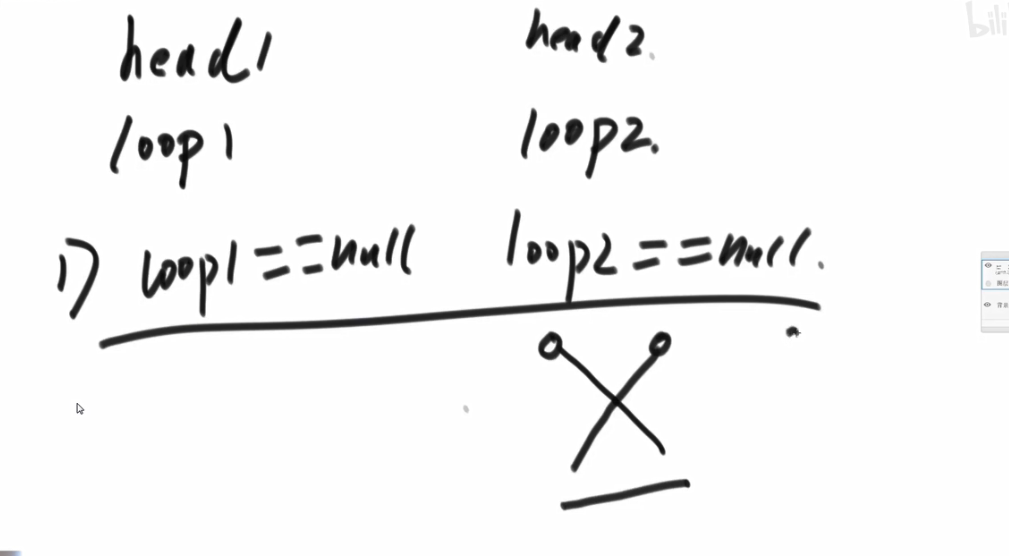 head1 head2.
bili
loop1 loop2.
1) loop1 == null loop2 == null.